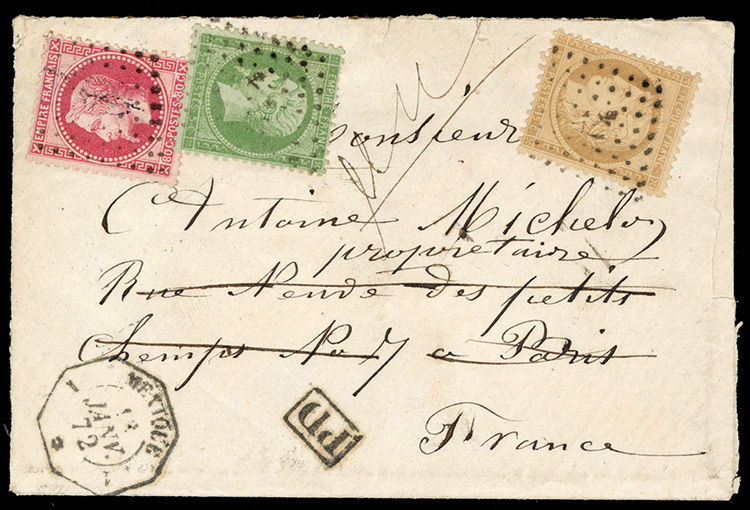 EMPIRE FRANÇAIS
80C·POSTES·80C
Monsieur
Antoine Michelez
propriétaire
Rue Neuve des petits
Champs No 7 a Paris
France
MEXIQUE
JANV.
72
PD